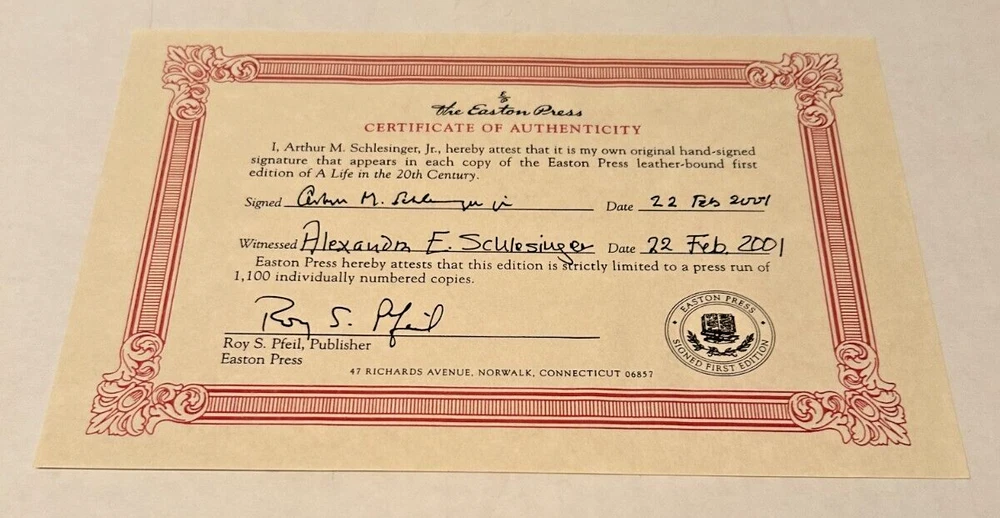 The Easton Press
CERTIFICATE OF AUTHENTICITY
I, Arthur M. Schlesinger, Jr., hereby attest that it is my own original hand-signed
signature that appears in each copy of the Easton Press leather-bound first
edition of A Life in the 20th Century.
Signed Arthur M. Schlesinger jr Date 22 Feb 2001
Witnessed Alexandra E. Schlesinger Date 22 Feb. 2001
Easton Press hereby attests that this edition is strictly limited to a press run of
1,100 individually numbered copies.
Roy S. Pfeil
Roy S. Pfeil, Publisher
Easton Press
EASTON PRESS
SIGNED FIRST EDITION
47 RICHARDS AVENUE, NORWALK, CONNECTICUT 06857